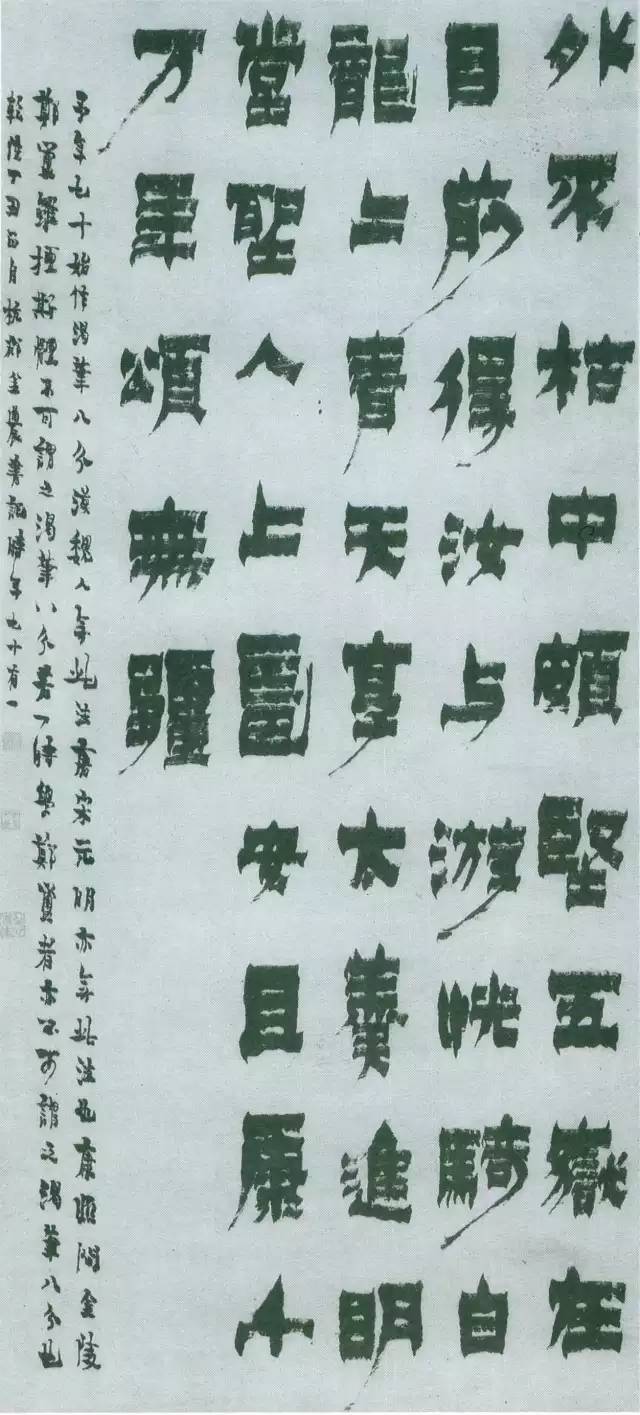 外不枯中頗堅五嶽在
目前得汝与游恍騎白
龍上青天享太羹進明
堂聖人上圖安且康千
万年頌無疆
予年七十始作渴筆八分漢魏人無此法唐宋元明亦無此法也康熙間金陵
鄭簠雖擅斯體不可謂之渴筆八分若一時學鄭簠者亦不可謂之渴筆八分也
乾隆丁丑月杭郡金農書記時年七十有一